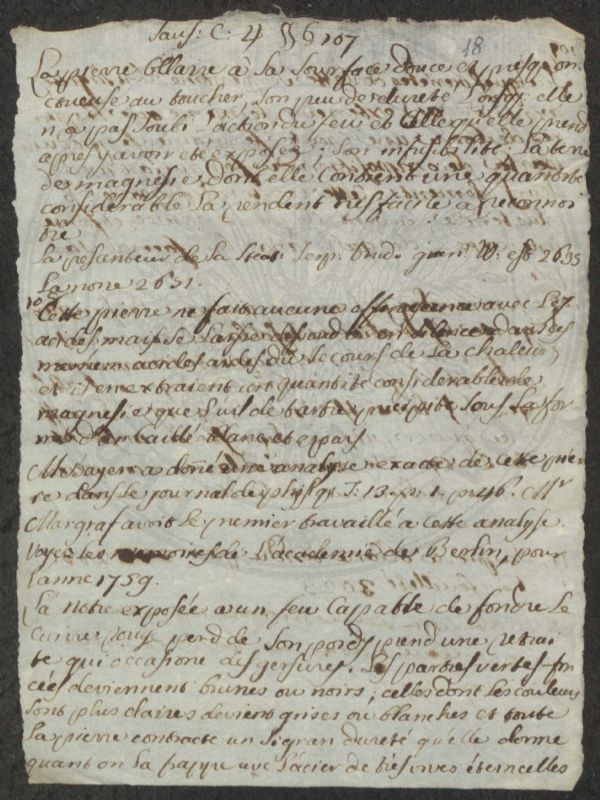 Saus: C. 4 §§ 107
18
La pierre Ollarre à la Surface douce et presq' on
ctueuse au toucher, Son peu de dureté lorsq' elle
n'a pas soubi l'action du feu et Celle qu'elle prend
apres y avoir eté exposée, Son infusibilité, La terre
de magnesie dont elle Contient une quantité
considerable La rendent très facile a reconnoi
tre
La pesenteur de la Steat: Serp: W: est 2695
La notre 2631.
108
Cette pierre ne fait aucune effervescence avec Les
acides mais se Laisse dissoudre en silence dans ces
memes acides aidés du secours de La chaleur
et il en extraient une quantité considerable de
magnesie que l'uil de tartre precipite sous La for
me d'un Caillé blanc et epais
Mr Bayen a doñé une analyse exacte de cette pier
re dans le journal de phisiq' T: 13. p: 46. Mr
Margraf avoit le premier travaillé a cette analyse.
Voyez les memoires de L'academie de Berlin, pour
l'anne 1759.
La notre exposée a un feu Capable de fondre Le
Cuivre rouge perd de Son poids prend une retrai
te qui occasione des gersures. Les parties vertes fon
cées deviennent brunes ou noirs, celles dont les couleurs
sont plus claires devient grises ou blanches et toute
La pierre contracte un si gran dureté qu'elle donne
quant on la frappe avec L'acier de tres vives etencelles